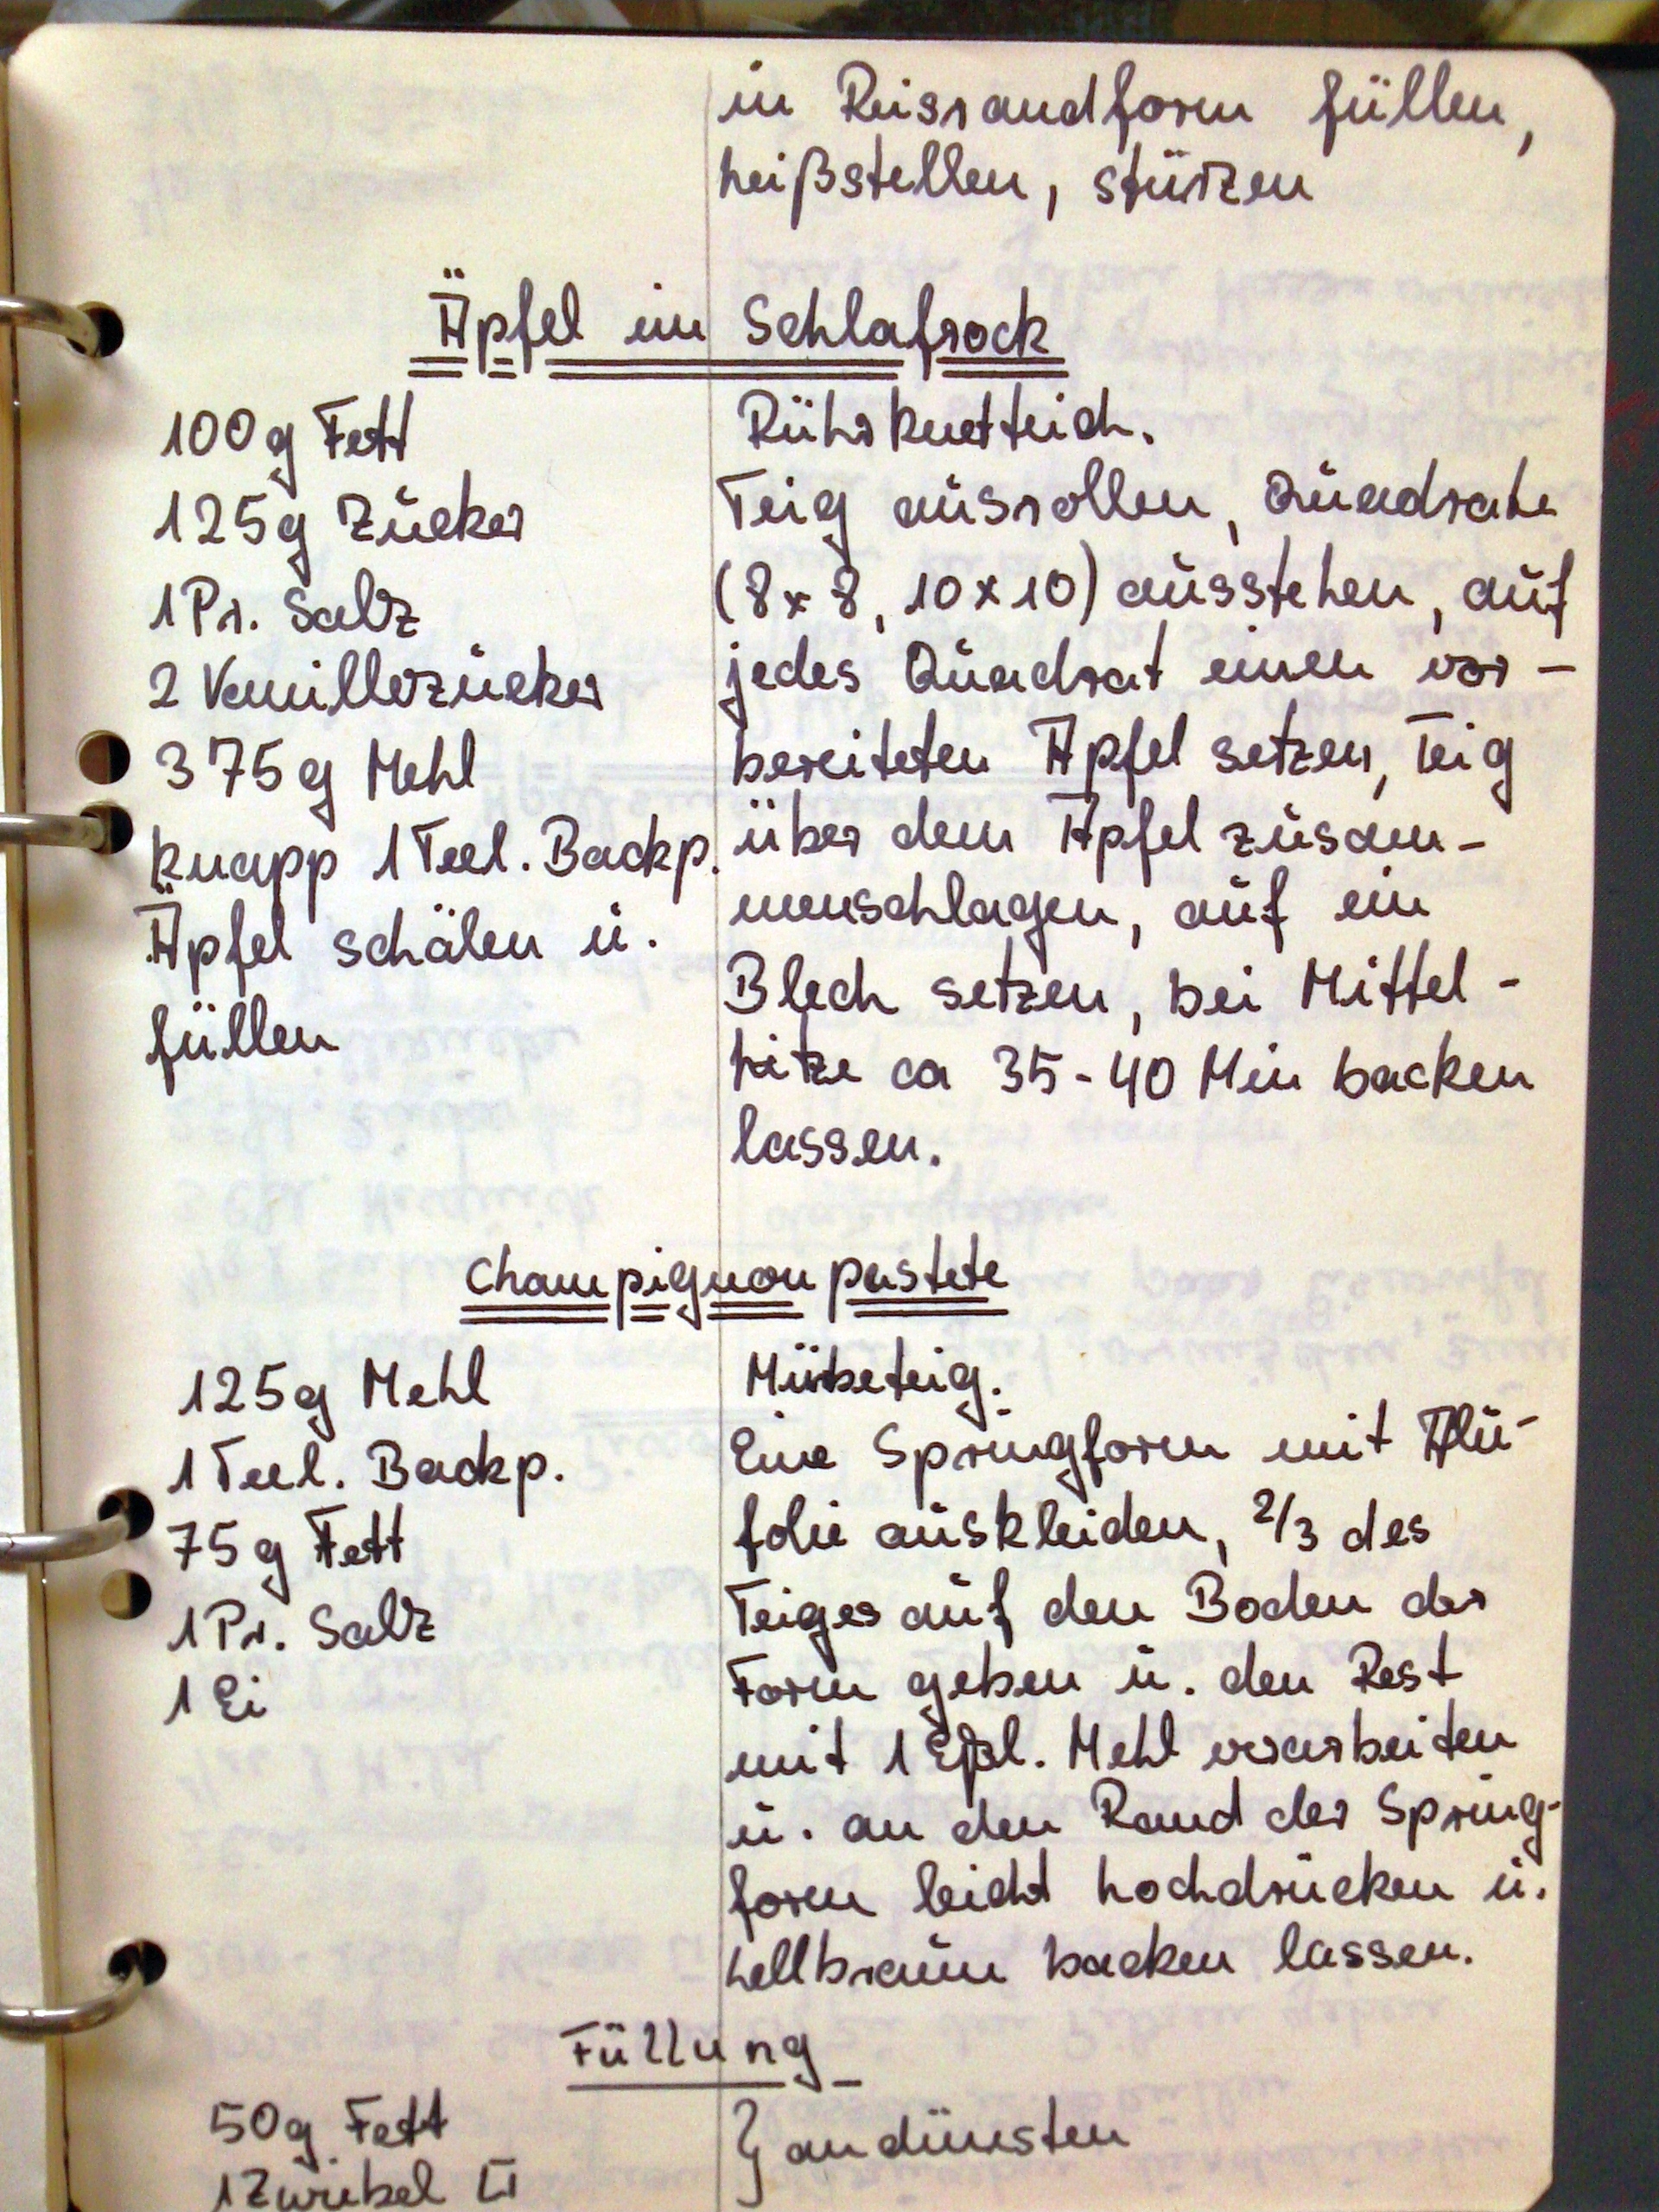 in Reisrandform füllen,
heißstellen, stürzen
Äpfel im Schlafrock
100g Fett
125g Zucker
1 Pr. Salz
2 Vanillezucker
375g Mehl
knapp 1 Teel. Backp.
Äpfel schälen u.
füllen
Rührknetteich.
Teig ausrollen, Quadrate
(8x8, 10x10) ausstehen, auf
jedes Quadrat einen vor-
bereiteten Apfel setzen, Teig
über dem Apfel zusam-
menschlagen, auf ein
Blech setzen, bei Mittel-
hitze ca 35-40 Min backen
lassen.
Champignonpastete
125g Mehl
1 Teel. Backp.
75g Fett
1 Pr. Salz
1 Ei
Mürbeteig.
Eine Springform mit Alu-
folie auskleiden, 2/3 des
Teiges auf den Boden der
Form geben u. den Rest
mit 1 Eßl. Mehl verarbeiten
u. an den Rand der Spring-
form leicht hochdrücken u.
hellbraun backen lassen.
Füllung
50g Fett
1 Zwiebel
} andünsten